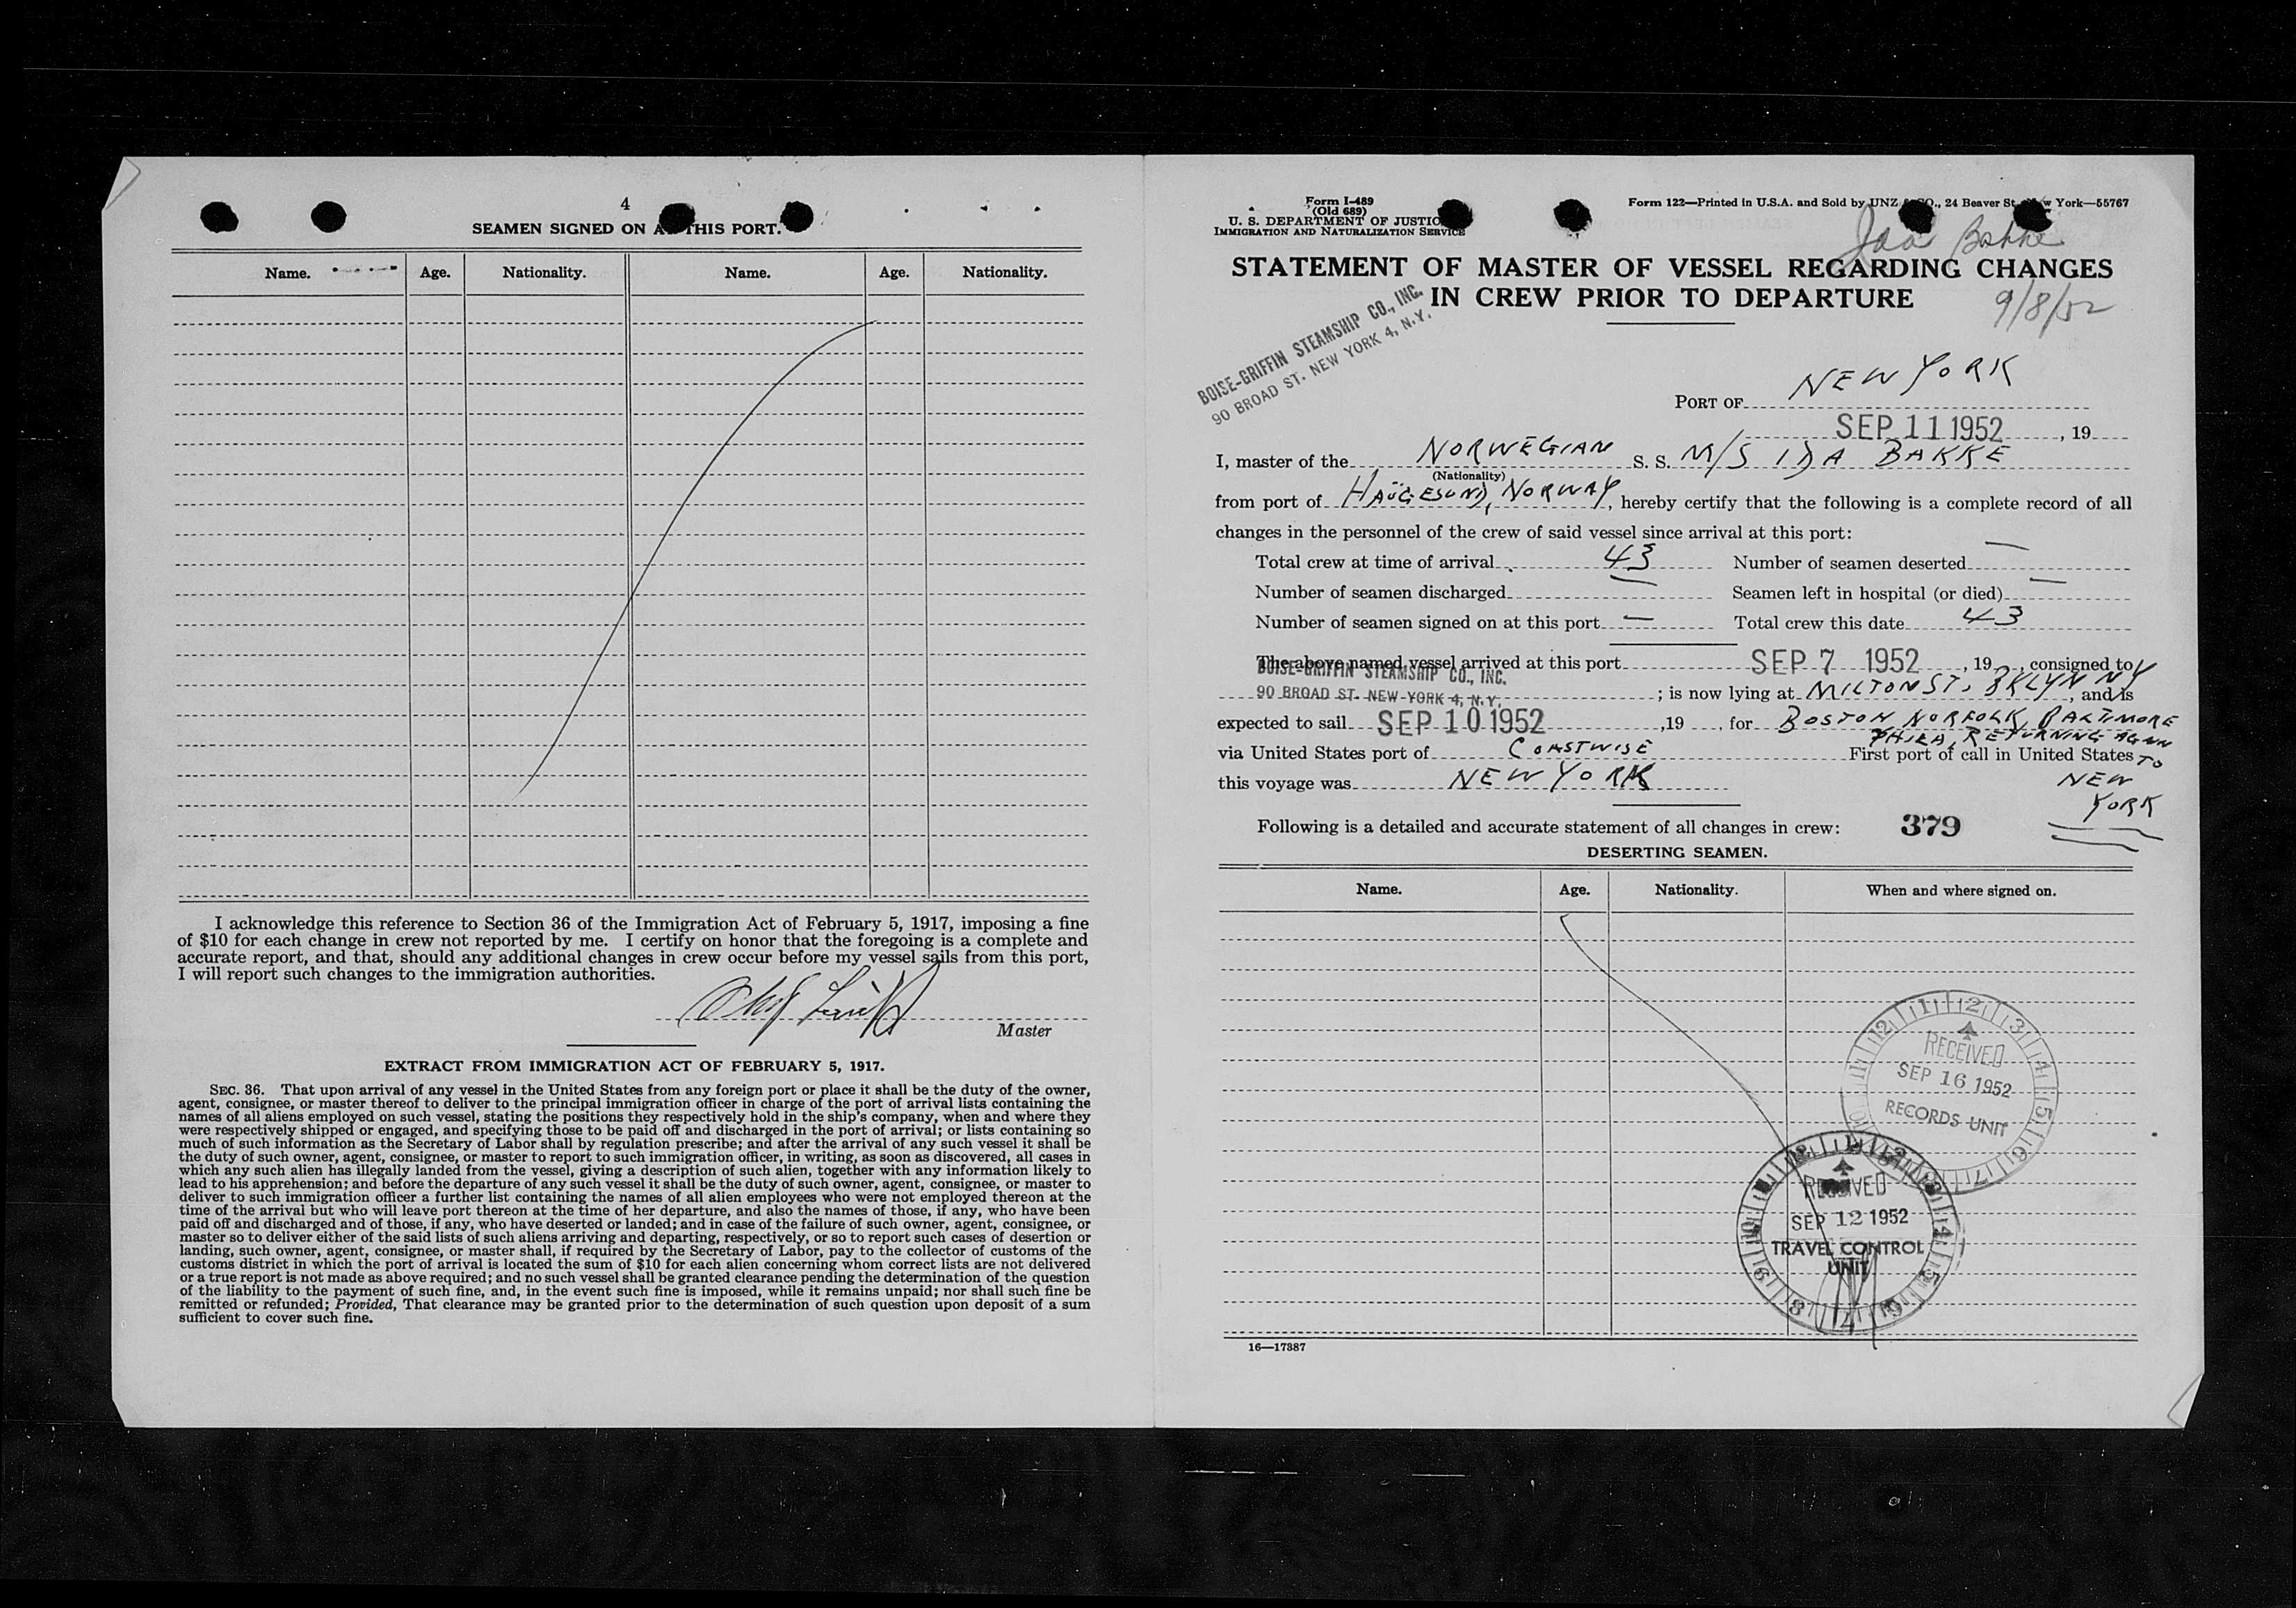 4
SEAMEN SIGNED ON AT THIS PORT.
Name. Age. Nationality. Name. Age. Nationality.
I acknowledge this reference to Section 36 of the Immigration Act of February 5, 1917, imposing a fine
of $10 for each change in crew not reported by me. I certify on honor that the foregoing is a complete and
accurate report, and that, should any additional changes in crew occur before my vessel sails from this port,
I will report such changes to the immigration authorities.
Master
EXTRACT FROM IMMIGRATION ACT OF FEBRUARY 5, 1917.
SEC. 36. That upon arrival of any vessel in the United States from any foreign port or place it shall be the duty of the owner,
agent, consignee, or master thereof to deliver to the principal immigration officer in charge of the port of arrival lists containing the
names of all aliens employed on such vessel, stating the positions they respectively hold in the ship's company, when and where they
were respectively shipped or engaged, and specifying those to be paid off and discharged in the port of arrival; or lists containing so
much of such information as the Secretary of Labor shall by regulation prescribe; and after the arrival of any such vessel it shall be
the duty of such owner, agent, consignee, or master to report to such immigration officer, in writing, as soon as discovered, all cases in
which any such alien has illegally landed from the vessel, giving a description of such alien, together with any information likely to
lead to his apprehension; and before the departure of any such vessel it shall be the duty of such owner, agent, consignee, or master to
deliver to such immigration officer a further list containing the names of all alien employees who were not employed thereon at the
time of the arrival but who will leave port thereon at the time of her departure, and also the names of those, if any, who have been
paid off and discharged and of those, if any, who have deserted or landed; and in case of the failure of such owner, agent, consignee, or
master so to deliver either of the said lists of such aliens arriving and departing, respectively, or so to report such cases of desertion or
landing, such owner, agent, consignee, or master shall, if required by the Secretary of Labor, pay to the collector of customs of the
customs district in which the port of arrival is located the sum of $10 for each alien concerning whom correct lists are not delivered
or a true report is not made as above required; and no such vessel shall be granted clearance pending the determination of the question
of the liability to the payment of such fine, and, in the event such fine is imposed, while it remains unpaid; nor shall such fine be
remitted or refunded; Provided, That clearance may be granted prior to the determination of such question upon deposit of a sum
sufficient to cover such fine.
Form I-489
(Old 689)
U. S. DEPARTMENT OF JUSTICE
IMMIGRATION AND NATURALIZATION SERVICE
Form 122—Printed in U.S.A. and Sold by UNZ & CO., 24 Beaver St., New York—55767
Ida Bakke
STATEMENT OF MASTER OF VESSEL REGARDING CHANGES
IN CREW PRIOR TO DEPARTURE
9/8/52
BOISE-GRIFFIN STEAMSHIP CO., INC.
90 BROAD ST. NEW YORK 4, N.Y.
PORT OF NEW YORK
SEP 11 1952, 19
I, master of the NORWEGIAN S. S. M/S IDA BAKKE
(Nationality)
from port of HAUGESUND, NORWAY, hereby certify that the following is a complete record of all
changes in the personnel of the crew of said vessel since arrival at this port:
Total crew at time of arrival 43 Number of seamen deserted —
Number of seamen discharged — Seamen left in hospital (or died) —
Number of seamen signed on at this port — Total crew this date 43
The above named vessel arrived at this port SEP 7 1952, 19, consigned to
BOISE-GRIFFIN STEAMSHIP CO., INC.
90 BROAD ST. NEW YORK 4, N.Y. ; is now lying at MILTON ST, BKLYN NY, and is
expected to sail SEP 10 1952, 19, for BOSTON NORFOLK, BALTIMORE
PHILA, RETURNING AGAIN
via United States port of COASTWISE First port of call in United States TO
this voyage was NEW YORK NEW
YORK
Following is a detailed and accurate statement of all changes in crew: 379
DESERTING SEAMEN.
Name. Age. Nationality. When and where signed on.
RECEIVED
SEP 16 1952
RECORDS UNIT
RECEIVED
SEP 12 1952
TRAVEL CONTROL
UNIT
16—17387